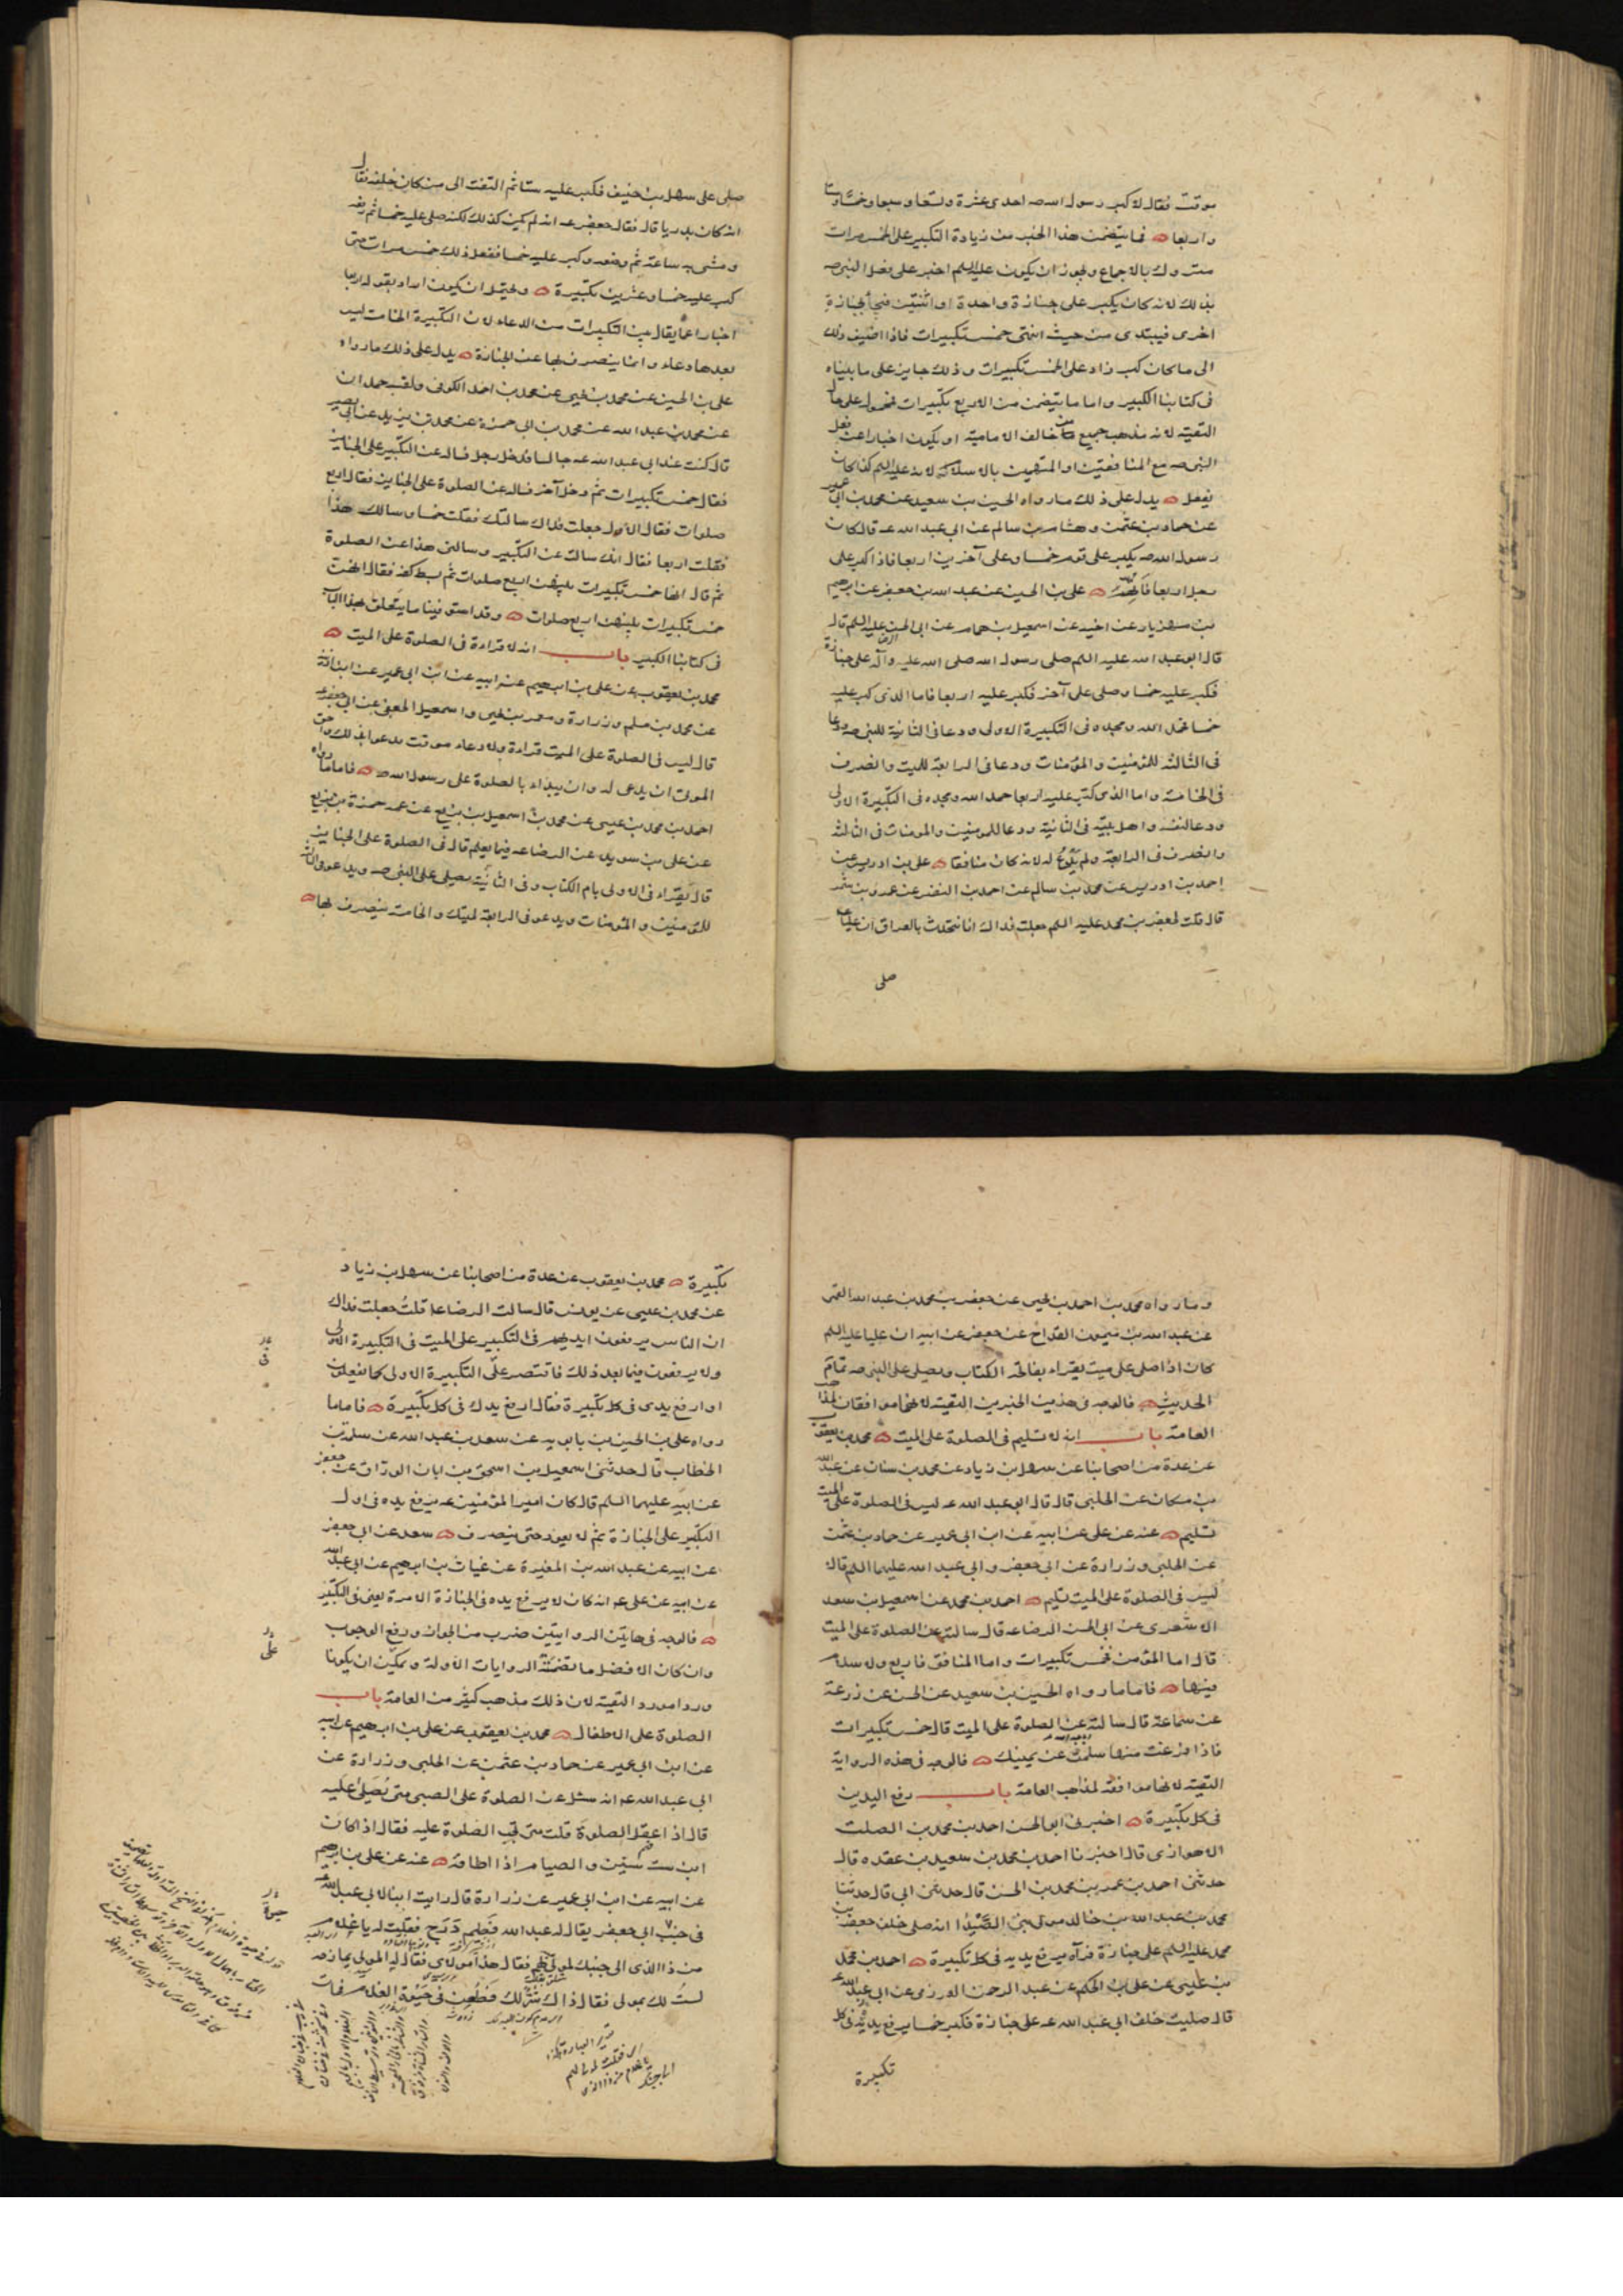 موقت فقال لا كبر رسول الله صه احدى عشرة وتسعا وسبعا وخمسا وستا
واربعا فما يتضمن هذا الخبر من زيادة التكبير على الخمس مرات
متروك بالاجماع ويجوز ان يكون عليه السلم اخبر على فعل النبي صه
بذلك لانه كان يكبر على جنازة واحدة او اثنتين فيجأ بجنازة
اخرى فيبتدى من حيث انتهى خمس تكبيرات فاذا اضيف ذلك
الى ما كان كبر زاد على الخمس تكبيرات وذلك جايز على ما بيناه
فى كتابنا الكبير واما ما يتضمن من الاربع تكبيرات فمحمول على حال
التقية لانه مذهب جميع من خالف الامامية او يكون اخبارا عن فعل
النبى صه مع المنافقين او المتهمين بالاسلام لانه عليه السلم كذا كان
يفعل يدل على ذلك ما رواه الحسين بن سعيد عن محمد بن ابى عمير
عن حماد بن عثمن وهشام بن سالم عن ابى عبد الله عه قال كان
رسول الله صه يكبر على قوم خمسا وعلى آخرين اربعا فاذا كبر على
رجل اربعا اتهم على بن الحسين عن عبد الله بن جعفر عن ابرهيم
بن مهزيار عن اخيه عن اسمعيل بن همام عن ابى الحسن عليه السلم قال
قال ابو عبد الله عليه السلم صلى رسول الله صلى الله عليه وآله على جنازة
فكبر عليه خمسا وصلى على آخر فكبر عليه اربعا فاما الذى كبر عليه
خمسا فحمد الله ومجده فى التكبيرة الاولى ودعا فى الثانية للنبى صه ودعا
فى الثالثة للمؤمنين والمؤمنات ودعا فى الرابعة للميت وانصرف
فى الخامسة واما الذى كبر عليه اربعا حمد الله ومجده فى التكبيرة الاولى
ودعا لنفسه واهل بيته فى الثانية ودعا للمومنين والمومنات فى الثالثة
وانصرف فى الرابعة ولم يدع له لانه كان منافقا على بن ادريس عن
احمد بن ادريس عن محمد بن سالم عن احمد بن النضر عن عمرو بن شمر
قال قلت لجعفر بن محمد عليه السلم جعلت فداك انا نتحدث بالعراق ان عليا عه
صلى
صلى على سهل بن حنيف فكبر عليه ستا ثم التفت الى من كان خلفه فقال
انه كان بدريا قال فقال جعفر عه انه لم يكن كذلك لكنه صلى عليه خمسا ثم رفعه
ومشى به ساعة ثم وضعه وكبر عليه خمسا ففعل ذلك خمس مرات حتى
كبر عليه خمسا وعشرين تكبيرة ويحتمل ان يكون اراد بقوله اربعا
اخبارا عما يقال بين التكبيرات من الدعاء لان التكبيرة الخامسة ليس
بعدها دعاء وانما ينصرف بها عن الجنازة يدل على ذلك ما رواه
على بن الحسين عن محمد بن يحيى عن محمد بن احمد الكوفى ولقبه حمدان
عن محمد بن عبد الله عن محمد بن ابى حمزة عن محمد بن يزيد عن ابى بصير
قال كنت عند ابى عبد الله عه جالسا فدخل رجل فساله عن التكبير على الجنايز
فقال خمس تكبيرات ثم دخل آخر فساله عن الصلوة على الجنايز فقال اربع
صلوات فقال الاول جعلت فداك سالتك فقلت خمسا وسالك هذا
فقلت اربعا فقال انك سالت عن التكبير وسالنى هذا عن الصلوة
ثم قال انها خمس تكبيرات بينهن اربع صلوات ثم بسط كفه فقال انهن
خمس تكبيرات بينهن اربع صلوات وقد استوفينا ما يتعلق بهذا الباب
فى كتابنا الكبير باب انه لا قراءة فى الصلوة على الميت
محمد بن يعقوب عن على بن ابرهيم عن ابيه عن ابن ابى عمير عن ابن اذينة
عن محمد بن مسلم وزرارة ومعمر بن يحيى واسمعيل الجعفى عن ابى جعفر عه
قال ليس فى الصلوة على الميت قراءة ولا دعاء موقت تدعو ابما بدا لك واحق
الموتى ان يدعى له وان يبداء بالصلوة على رسول الله صه فاما ما رواه
احمد بن محمد بن عيسى عن محمد بن اسمعيل بن بزيع عن عمه حمزة بن بزيع
عن على بن سويد عن الرضا عه فيما يعلم قال فى الصلوة على الجنايز
قال يقراء فى الاولى بام الكتاب وفى الثانية يصلى على النبى صه ويدعو فى الثالثة
للمؤمنين والمؤمنات ويدعو فى الرابعة لميتك والخامسة ينصرف بها
وما رواه محمد بن احمد بن يحيى عن جعفر بن محمد بن عبد الله القمى
عن عبد الله بن ميمون القداح عن جعفر عن ابيه ان عليا عليه السلم
كان اذا صلى على ميت يقراء بفاتحة الكتاب ويصلى على النبى صه تمام
الحديث فالوجه فى هذين الخبرين التقية لانهما موافقان لمذاهب
العامة باب انه لا تسليم فى الصلوة على الميت محمد بن يعقوب
عن عدة من اصحابنا عن سهل بن زياد عن محمد بن سنان عن عبد الله
بن مسكان عن الحلبى قال قال ابو عبد الله عه ليس فى الصلوة على الميت
تسليم عنه عن على عن ابيه عن ابن ابى عمير عن حماد بن عثمن
عن الحلبى وزرارة عن ابى جعفر وابى عبد الله عليهما السلم قالا
ليس فى الصلوة على الميت تسليم احمد بن محمد عن اسمعيل بن سعد
الاشعرى عن ابى الحسن الرضا عه قال سالته عن الصلوة على الميت
قال اما المؤمن فخمس تكبيرات واما المنافق فاربع ولا سلام
فيها فاما ما رواه الحسين بن سعيد عن الحسن عن زرعة
عن سماعة قال سالته عن الصلوة على الميت قال خمس تكبيرات
فاذا فرغت منها سلمت عن يمينك فالوجه فى هذه الرواية
التقية لانها موافقة لمذاهب العامة باب رفع اليدين
فى كل تكبيرة اخبرنى ابو الحسن احمد بن محمد بن الصلت
الاهوازى قال اخبرنا احمد بن محمد بن سعيد بن عقده قال
حدثنى احمد بن عمر بن محمد بن الحسن قال حدثنى ابى قال حدثنا
محمد بن عبد الله بن خالد مولى بنى الصيدا انه صلى خلف جعفر بن
محمد عليه السلم على جنازة فرآه يرفع يديه فى كل تكبيرة احمد بن محمد
بن عيسى عن على بن الحكم عن عبد الرحمن العرزمى عن ابى عبد الله عه
قال صليت خلف ابى عبد الله عه على جنازة فكبر خمسا يرفع يديه فى كل
تكبيرة
تكبيرة محمد بن يعقوب عن عدة من اصحابنا عن سهل بن زياد
عن محمد بن عيسى عن يونس قال سالت الرضا عه قلت جعلت فداك
ان الناس يرفعون ايديهم فى التكبير على الميت فى التكبيرة الاولى
ولا يرفعون فيما بعد ذلك فاقتصر على التكبيرة الاولى كما يفعلون
او ارفع يدى فى كل تكبيرة فقال ارفع يدك فى كل تكبيرة فاما ما
رواه على بن الحسين بن بابويه عن سعد بن عبد الله عن سلمة بن
الخطاب قال حدثنى اسمعيل بن اسحق بن ابان الوراق عن جعفر
عن ابيه عليهما السلم قال كان امير المؤمنين عه يرفع يده فى اول
التكبير على الجنازة ثم لا يعود حتى ينصرف سعد عن ابى جعفر
عن ابيه عن عبد الله بن المغيرة عن غياث بن ابرهيم عن ابى عبد الله
عن ابيه عن على عه انه كان لا يرفع يده فى الجنازة الا مرة يعنى فى التكبير
فالوجه فى هاتين الروايتين ضرب من الجواز ورفع الوجوب
وان كان الافضل ما تضمنته الروايات الاولة ويمكن ان يكونا
وردا مورد التقية لان ذلك مذهب كثير من العامة باب
الصلوة على الاطفال محمد بن يعقوب عن على بن ابرهيم عن ابيه
عن ابن ابى عمير عن حماد بن عثمن عن الحلبى وزرارة عن
ابى عبد الله عه انه سئل عن الصلوة على الصبى متى يصلى عليه
قال اذا عقل الصلوة قلت متى تجب الصلوة عليه فقال اذا كان
ابن ست سنين والصيام اذا اطاقه عنه عن على بن ابرهيم
عن ابيه عن ابن ابى عمير عن زرارة قال رايت ابنا لابى عبد الله عه
فى حيوة ابى جعفر يقال له عبد الله فطيم درج فقلت له يا غلام
من ذا الذى الى جنبك لمولى لهم فقال هذا مولاى فقال له المولى يمازحه
لست لك بمولى فقال ذاك شر لك فطعن فى جنازة الغلام فمات